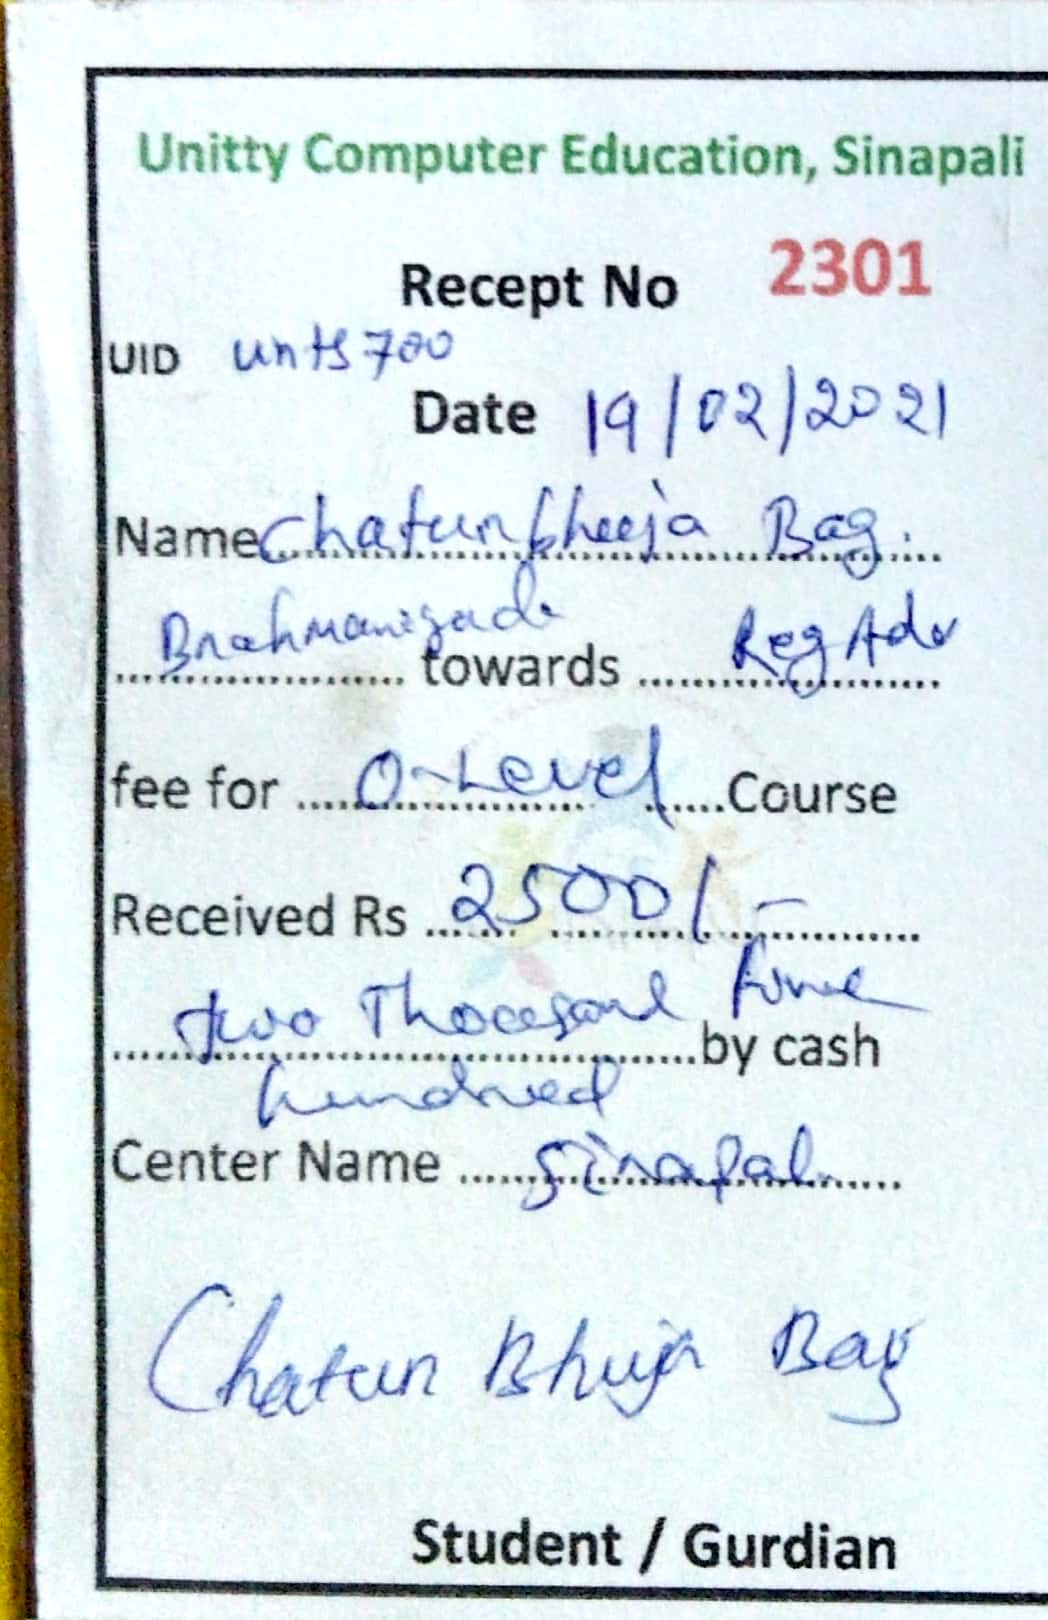 Unitty Computer Education, Sinapali
Recept No 2301
UID unts700
Date 19/02/2021
Name Chaturbhuja Bag.
Brahmanigade towards Reg Adv
fee for O-Level Course
Received Rs 2500/-
two Thousand five
by cash
hundred
Center Name Sinapali
Chatur Bhuja Bag
Student / Gurdian